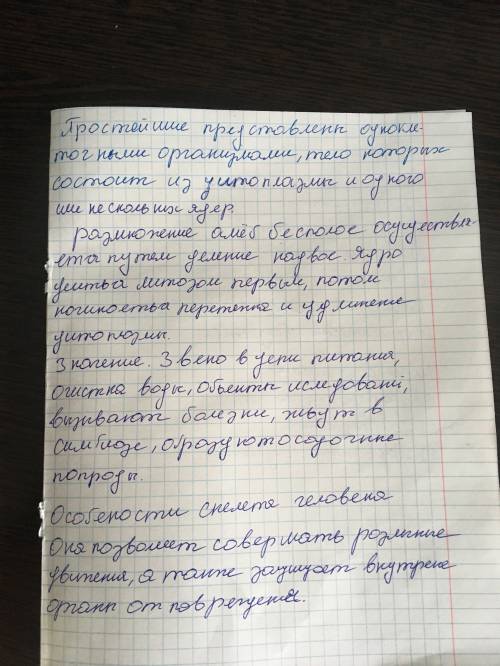 Простейшие представлены однокле-
точными организмами, тело которых
состоит из цитоплазмы и одного
или нескольких ядер.
Размножение амеб бесполое осуществля-
ета путем деление надвое. Ядро
делиться митозом первым, потом
начинаеться перетенка и удлинение
цитоплазмы.
Значение. Звено в цепи питания,
очистка воды, объекты иследований,
вызывают болезни, живут в
симбиозе, образуют осадочные
попроды.
Особености скелета человека
Она позволяет совершать различные
движения, а также защищает внутрение
органы от повреждения.